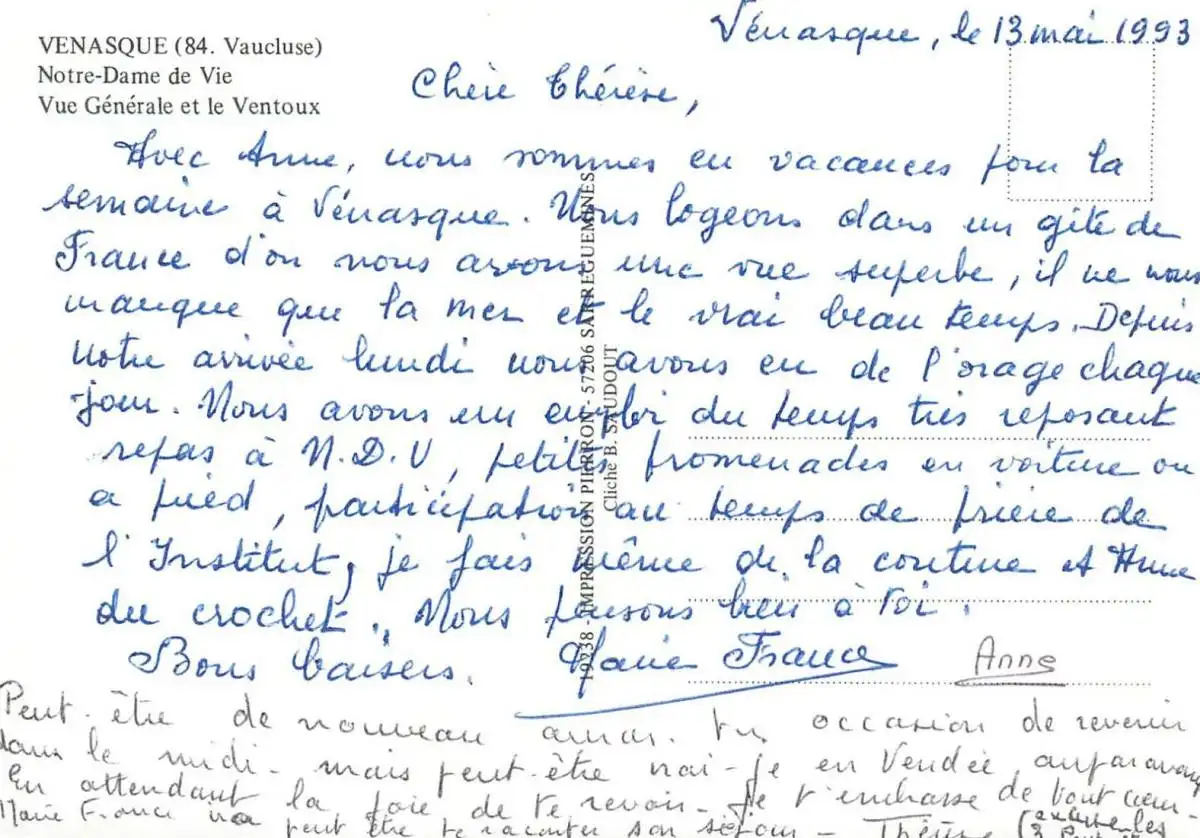 VENASQUE (84. Vaucluse)
Notre-Dame de Vie
Vue Générale et le Ventoux
Vénasque, le 13 mai 1993
Chère Thérèse,
Avec Anne, nous sommes en vacances pour la
semaine à Vénasque. Nous logeons dans un gîte de
France d'où nous avons une vue superbe, il ne nous
manque que la mer et le vrai beau temps. Depuis
notre arrivée lundi nous avons eu de l'orage chaque
jour. Nous avons un emploi du temps très reposant
repas à N.D.V, petites promenades en voiture ou
a pied, participation au temps de prière de
l'Institut, je fais même de la couture et Anne
du crochet. Nous pensons bien à toi.
Bons baisers. Marie France Anne
19238 - IMPRESSION PIERRON - 57206 SARREGUEMINES
Cliché B. SAUDOUT
Peut-être de nouveau occasion de revenir
dans le midi - mais peut-être irai-je en Vendée auparavant
En attendant la joie de te revoir - Je t'embrasse de tout cœur
Marie France peut être te raconter son séjour - Thérèse